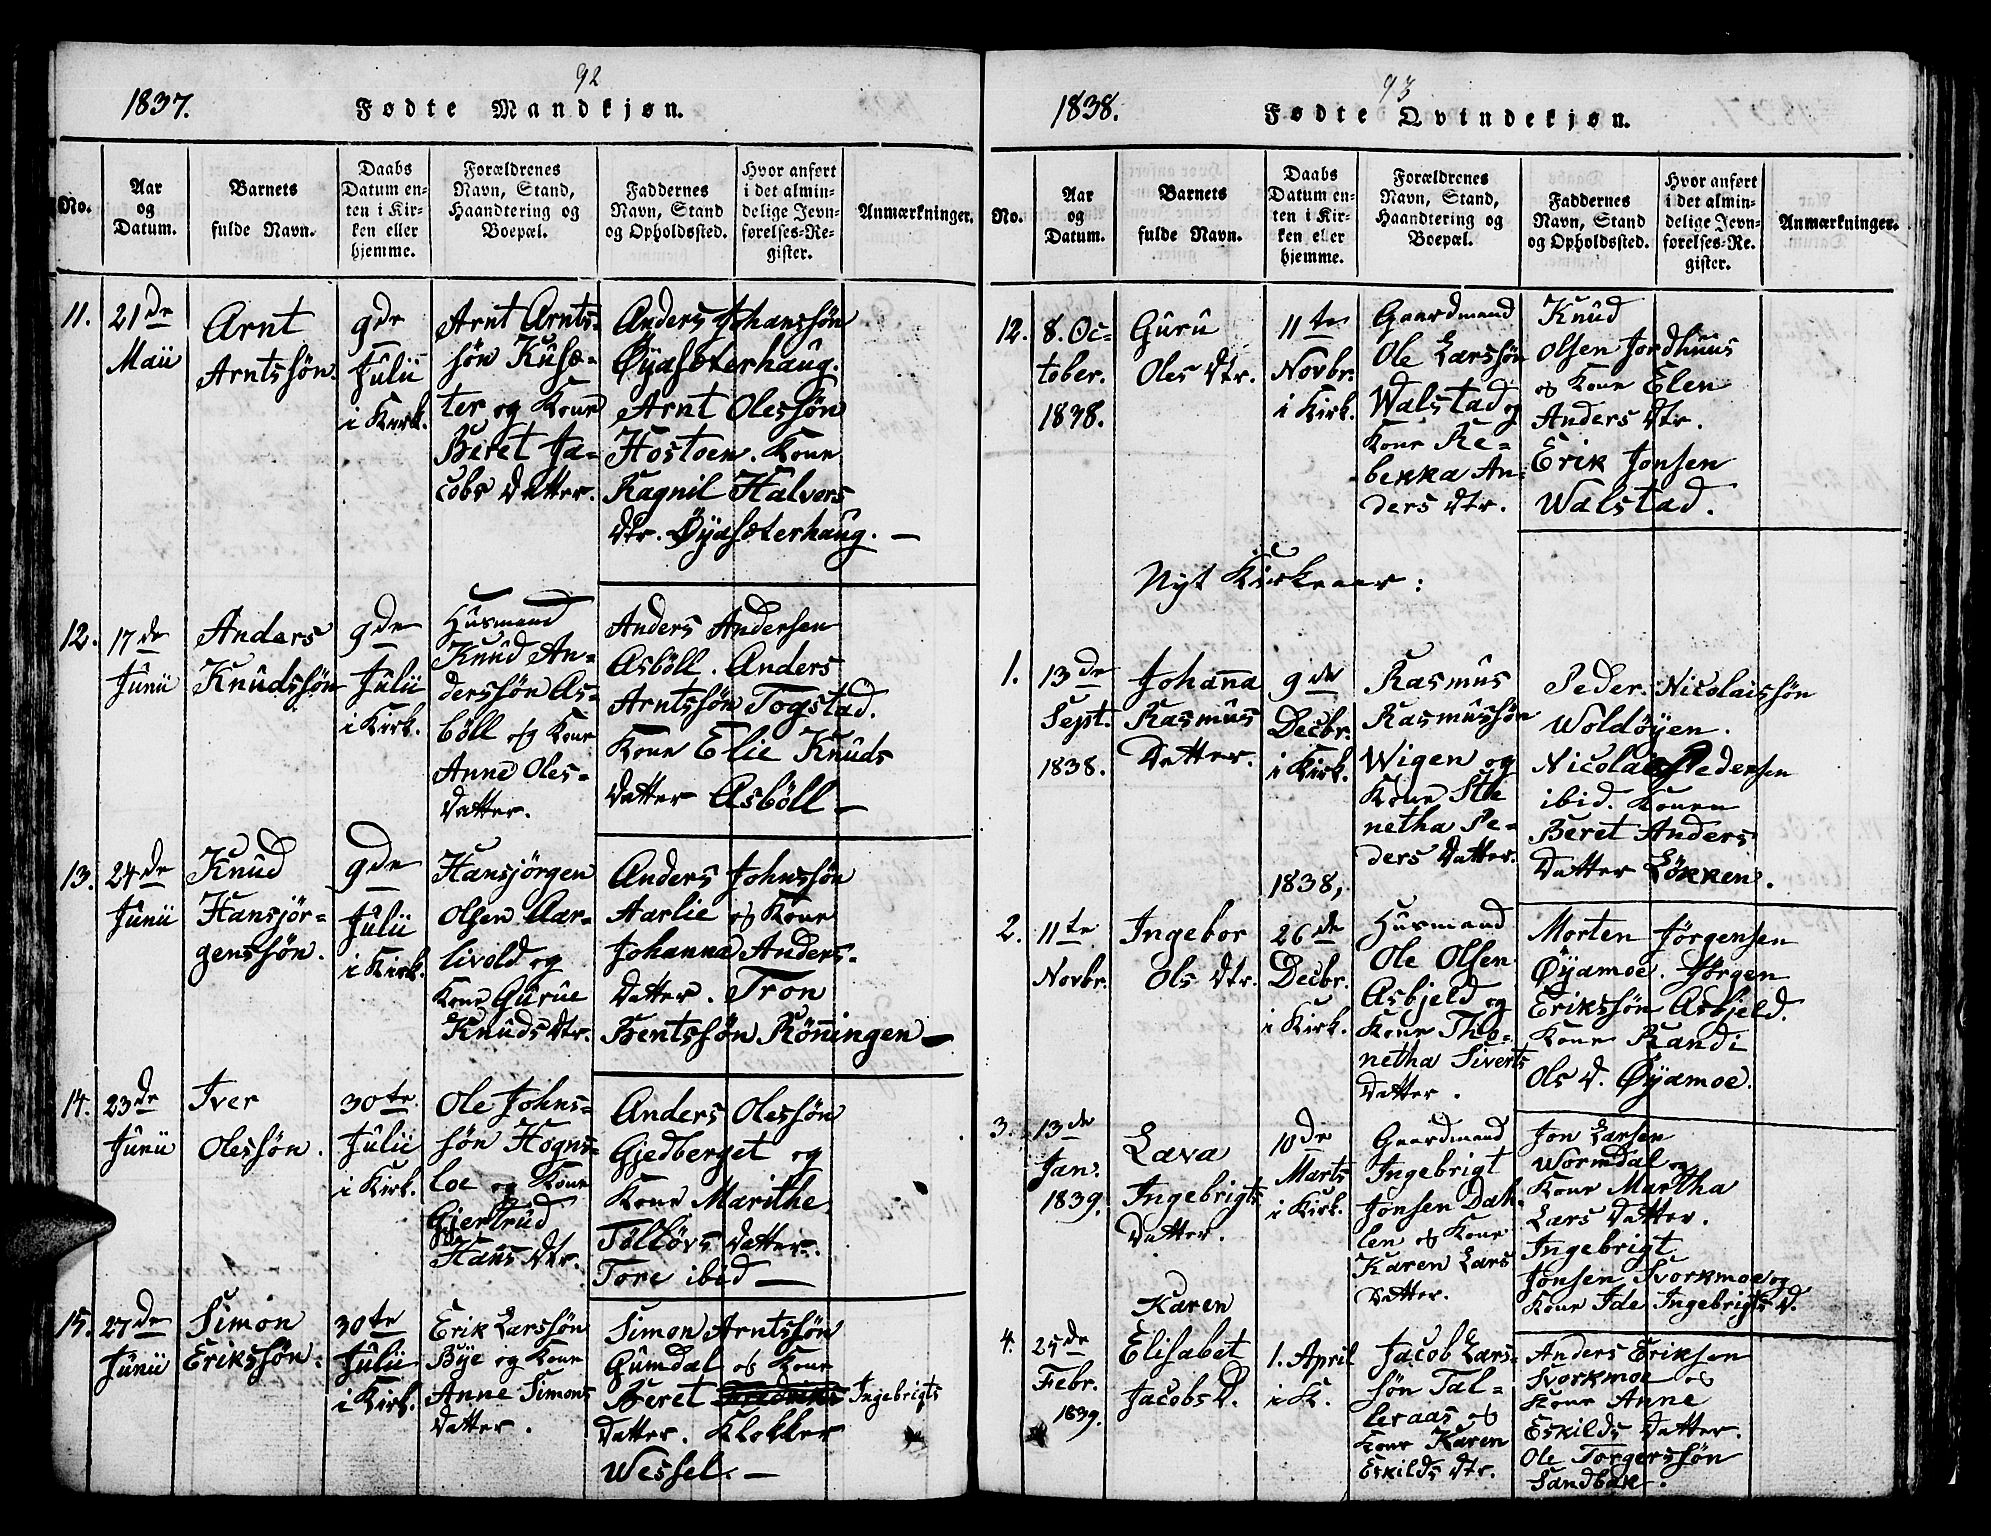 92
1837.
Fødte Mandkjøn.
No.
Aar
og
Datum.
Barnets
fulde Navn.
Daabs
Datum en-
ten i Kir-
ken eller
hjemme.
Forældrenes
Navn, Stand,
Haandtering og
Boepæl.
Faddernes
Navn, Stand
og Opholdssted.
Hvor anført
i det almin-
delige Jevn-
førelses-Re-
gister.
Anmærkninger.
11.
21de
Maii
Arnt
Arntssøn.
9de
Julii
i Kirk.
Arnt Arnts-
søn Kusæ-
ter og Kone
Beret Ja-
cobs Datter.
Anders Johanssøn
Øyasæterhaug.
Arnt Olessøn
Hostoen. Kone
Ragnil Halvors
Dtr. Øyasæterhaug. —
12.
17de
Junii
Anders
Knudssøn
9de
Julii
i Kirk.
Husmand
Knud An-
derssøn As-
böll og Kone
Anne Oles-
Datter.
Anders Andersen
Asböll. Anders
Arntssøn Togstad.
Kone Elie Knuds
Datter Asböll —
13.
24de
Junii
Knud
Hansjör-
genssøn.
9de
Julii
i Kirk.
Hansjörgen
Olsen Aar-
livold og
Kone Gurue
Knuds Dtr.
Anders Johnssøn
Aarlie og Kone
Johanna Anders-
Datter. Tron
Bentssøn Rönningen —
14.
23de
Junii
Iver
Olessøn.
30te
Julii
i Kirk.
Ole Johns-
søn Hogns-
loe og Kone
Gjertrud
Hans Dtr.
Anders Olessøn
Gjedberget og
Kone Marithe
Tolløvs Datter.
Tore ibid —
15.
27de
Junii
Simon
Erikssøn.
30te
Julii
i Kirk.
Erik Larssøn
Bye og Kone
Anne Simons
Datter.
Simon Arntssøn
Gumdal og Kone
Beret Ingebrigts
Datter. Klokker
Wessel. —
93
1838.
Fødte Qvindekjøn.
No.
Aar
og
Datum.
Barnets
fulde Navn.
Daabs
Datum en-
ten i Kir-
ken eller
hjemme.
Forældrenes
Navn, Stand,
Haandtering og
Boepæl.
Faddernes
Navn, Stand
og Opholdssted.
Hvor anført
i det almin-
delige Jevn-
førelses-Re-
gister.
Anmærkninger.
12.
8. Oc-
tober.
1838.
Guru
Oles Dtr.
11te
Novbr.
i Kirk.
Gaardmand
Ole Larssøn
Walstad og
Kone Re-
bekka An-
ders Dtr.
Knud
Olsen Jordhuus
og Kone Elen
Anders Dtr.
Erik Jonsen
Walstad.
Nyt Kirkeaar:
1.
13de
Sept.
1838.
Johanna
Rasmus
Datter.
9de
Decbr.
i Kirk.
Rasmus
Rasmussøn
Wigen og
Kone Sthe
netha Pe-
ders Datter.
Peder Nicolaissøn
Woldøyen.
Nicolai Pedersen
ibid. Konen
Beret Anders
Datter Løkken.
2.
11te
Novbr.
Ingebor
Ols Dtr.
1838,
26de
Decbr.
i Kirk.
Husmand
Ole Olsen
Asbjeld og
Kone Tho-
netha Siverts
Datter.
Morten Jørgensen
Øyamoe. Jørgen
Erikssøn Asbjeld.
Kone Randi
Ols D. Øyamoe.
3.
13de
Jan.
1839.
Lava
Ingebrigts
Datter.
10de
Marts
i Kirk.
Gaardmand
Ingebrigt
Jonsen Dah-
len og Kone
Karen Lars
Datter.
Jon Larsen
Wormdal og
Kone Martha
Lars Datter.
Ingebrigt
Jonsen Svorkmoe og
Kone Ide Ingebrigts D.
4.
25de
Febr.
1839.
Karen
Elisabet
Jacobs D.
1. April
i K.
Jacob Lars-
søn Tal-
leraas og
Kone Karen
Eskilds Dtr.
Anders Eriksen
Svorkmoe og
Kone Anne
Eskilds Datter.
Ole Torgerssøn
Sandbak.